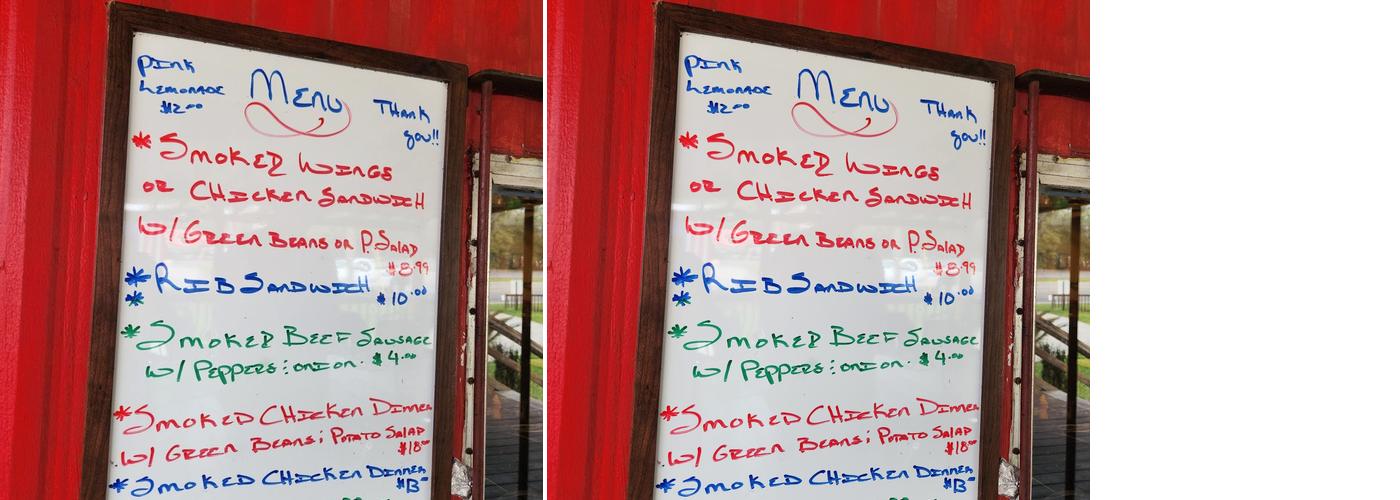 PINK
LEMONADE
$2.00
MENU
THANK
you!!
* SMOKED WINGS
OR CHICKEN SANDWICH
W/ GREEN BEANS OR P. SALAD
$8.99
* RIB SANDWICH
* $10.00
* SMOKED BEEF SAUSAGE
W/ PEPPERS : ONION. $4.00
* SMOKED CHICKEN DINNER
W/ GREEN BEANS ; POTATO SALAD
$18.00
* SMOKED CHICKEN DINNER
PINK
LEMONADE
$2.00
MENU
THANK
you!!
* SMOKED WINGS
OR CHICKEN SANDWICH
W/ GREEN BEANS OR P. SALAD
$8.99
* RIB SANDWICH
* $10.00
* SMOKED BEEF SAUSAGE
W/ PEPPERS : ONION. $4.00
* SMOKED CHICKEN DINNER
W/ GREEN BEANS ; POTATO SALAD
$18.00
* SMOKED CHICKEN DINNER